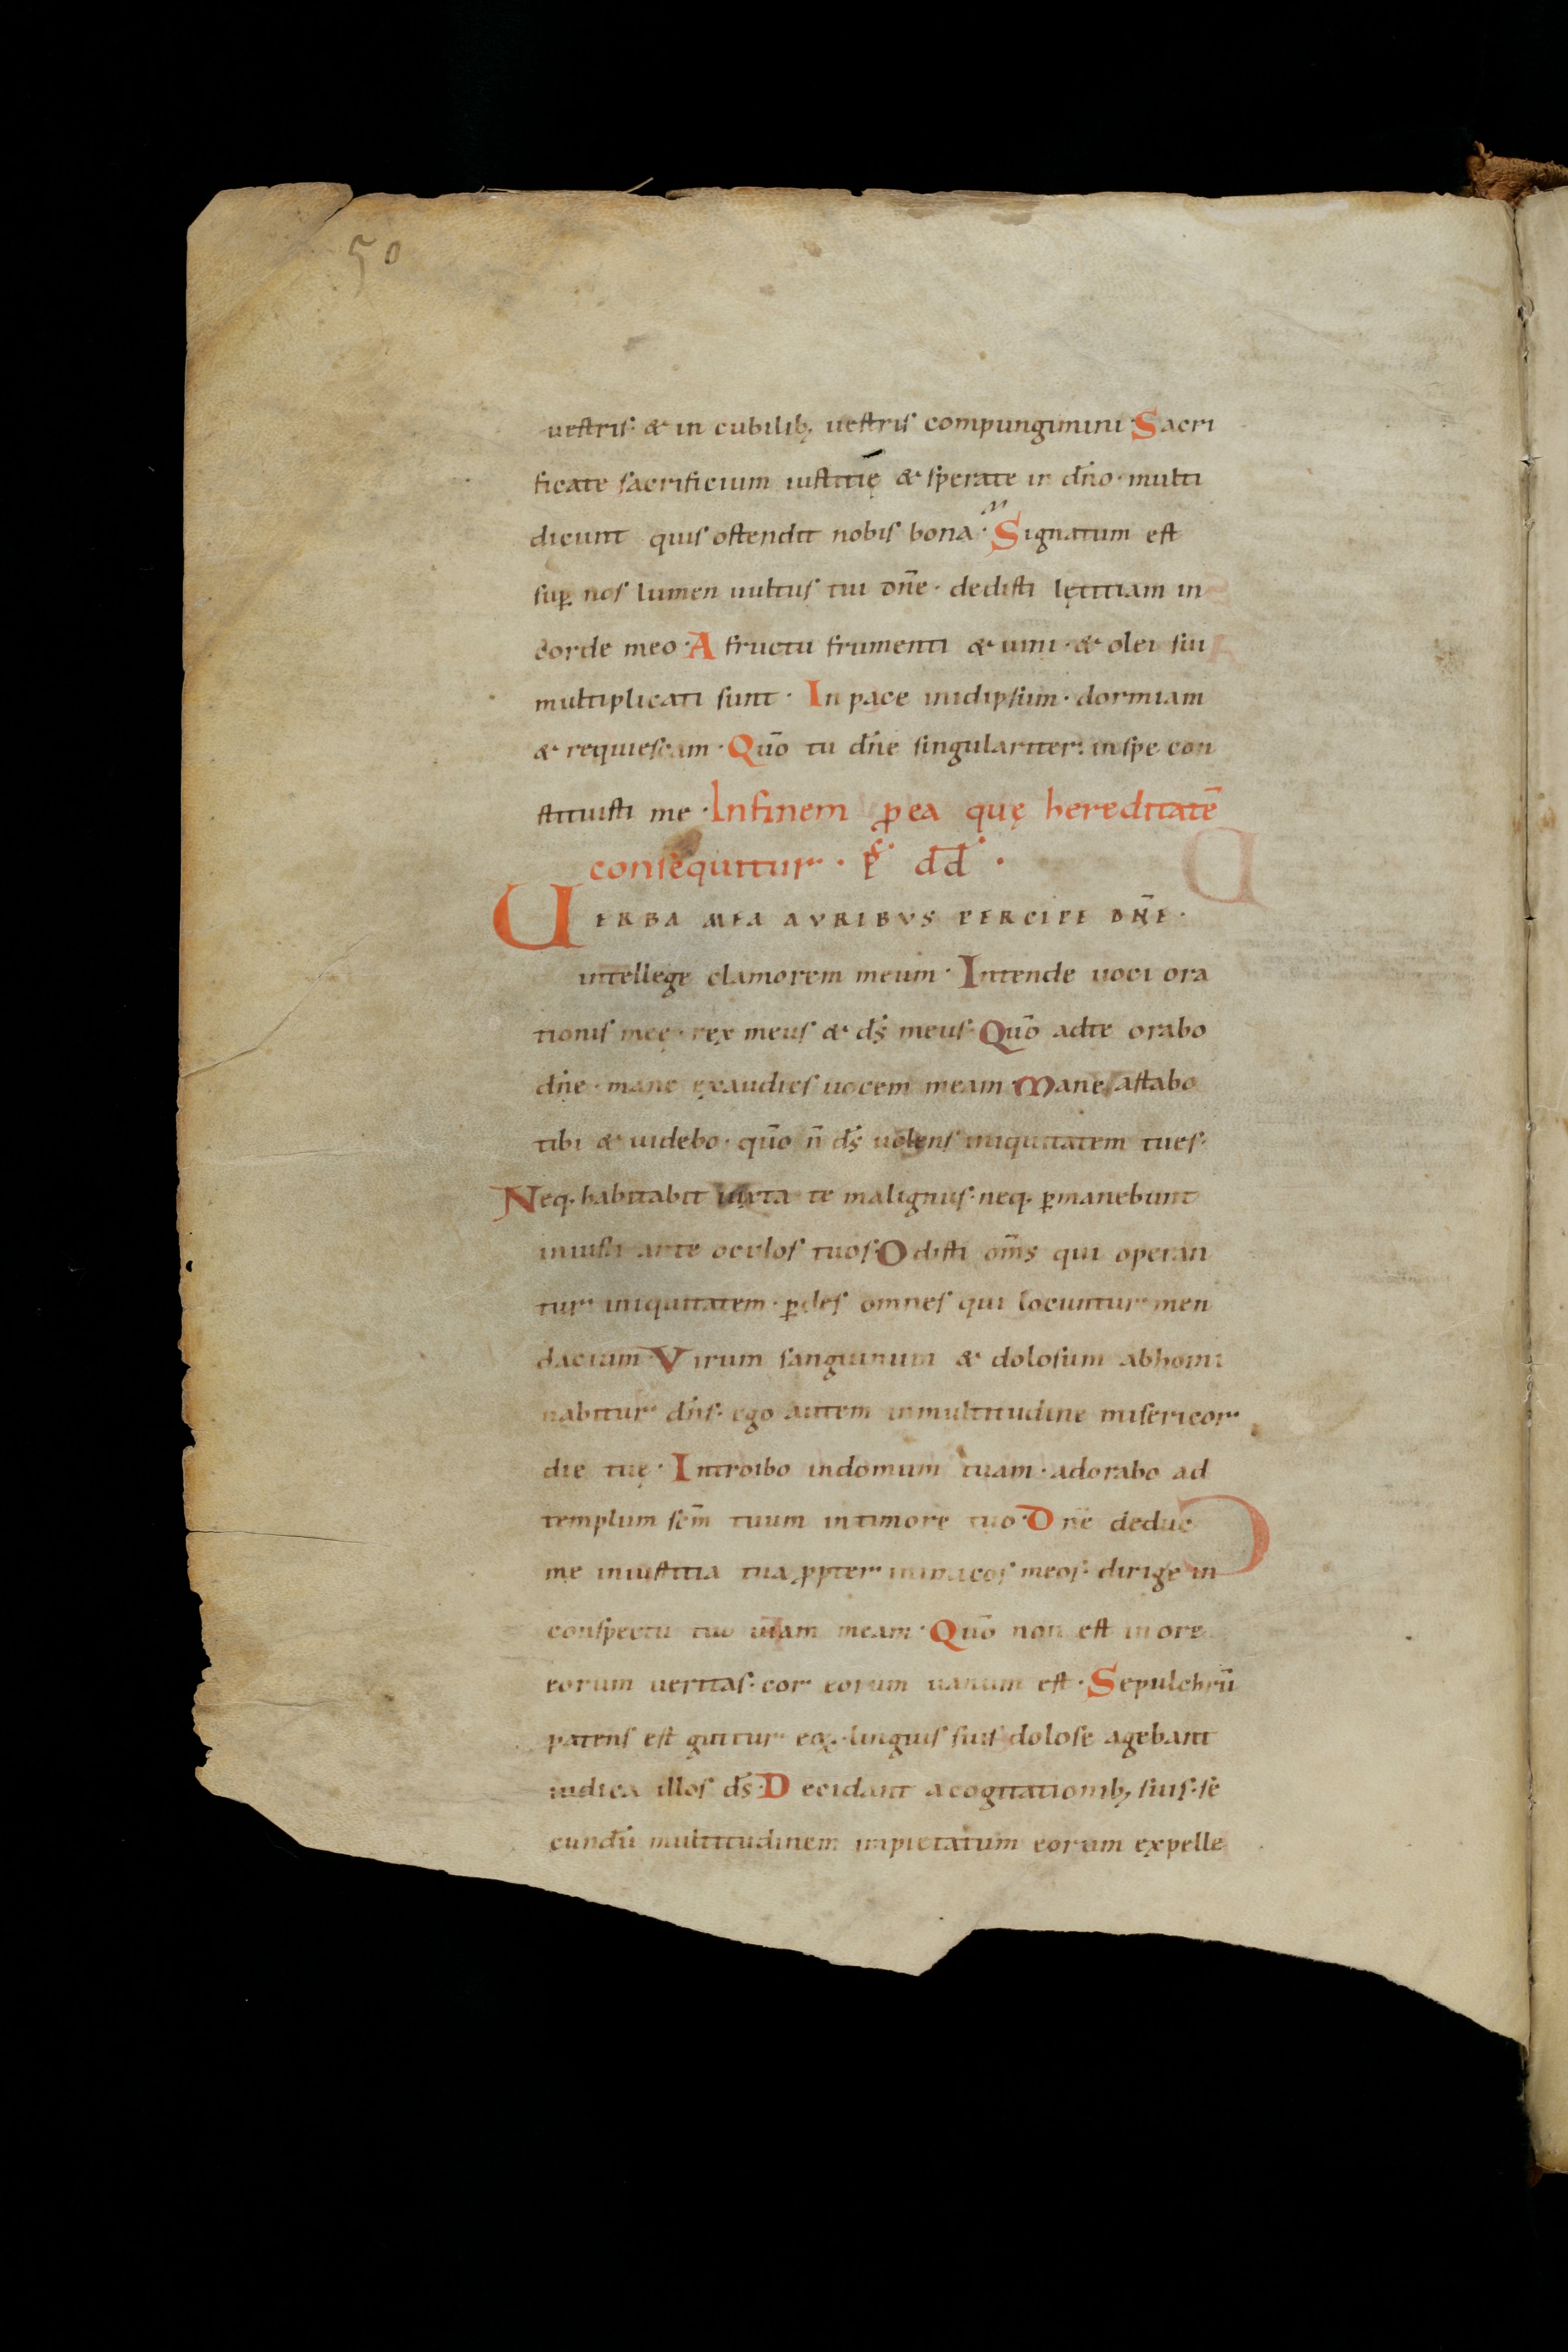 50
uestris· & in cubilib; uestris compungimini· Sacri
ficate sacrificium iustitię & sperate in dn̄o· multi
dicunt quis ostendit nobis bona· Signatum est
sup̱ nos lumen uultus tui dn̄e· dedisti lętitiam in
corde meo· A fructu frumenti & uini· & olei sui
multiplicati sunt· In pace inidipsum· dormiam
& requiescam· Quō tu dn̄e singulariter· inspe con
stituisti me· Infinem ꝓ ea quę hereditatē
consequitur· ps· dd̄·
UERBA MEA AVRIBVS PERCIPE DN̄E·
intellege clamorem meum· Intende uoci ora
tionis meę· rex meus & ds̄ meus· Quō adte orabo
dn̄e· mane exaudies uocem meam· Mane astabo
tibi & uidebo· quō n̄ ds̄ uolens iniquitatem tues·
Neq· habitabit iuxta te malignus· neq· ꝑmanebunt
iniusti ante oculos tuos· Odisti om̄s qui operan
tur iniquitatem· ꝑdes omnes qui locuntur men
dacium· Virum sanguinum & dolosum abhomi
nabitur dn̄s· ego autem inmultitudine misericor
die tuę· Introibo indomum tuam· adorabo ad
templum sc̄m tuum intimore tuo· Dn̄e deduc
me iniustitia tua ꝓpter inimicos meos· dirige in
conspectu tuo uiam meam· Quō non est inore
eorum ueritas· cor eorum uanum est· Sepulchrū
patens est guttur eoꝝ· linguis suis dolose agebant
iudica illos ds̄· Decidant acogitationib; suis· se
cundū multitudinem impietatum eorum expelle